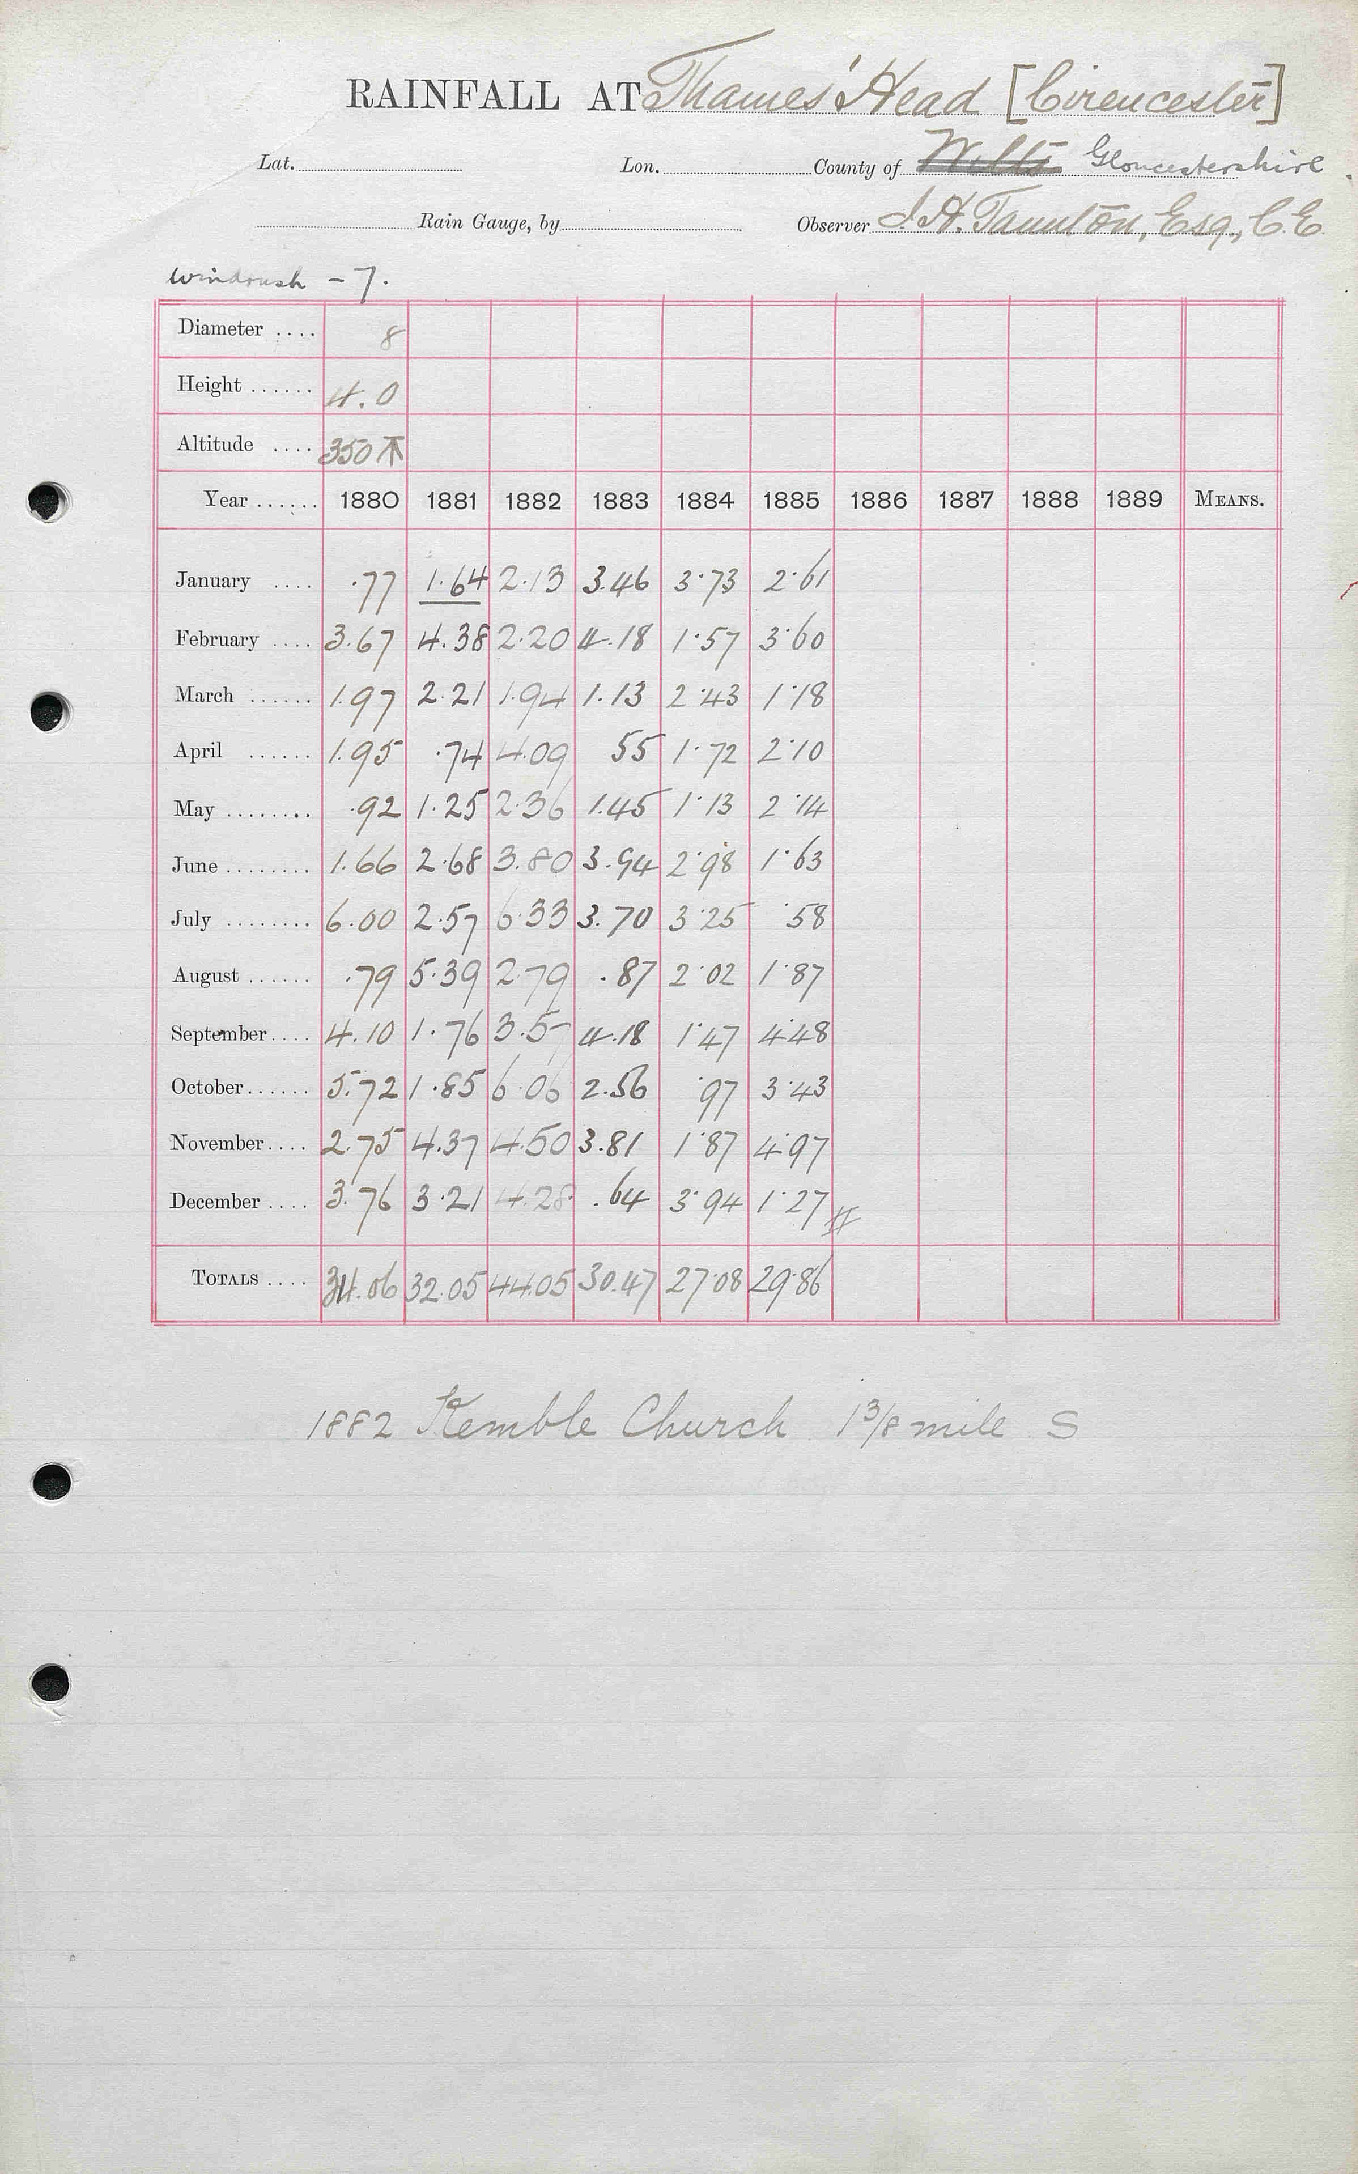 RAINFALL AT Thames' Head [Cirencester]
Lat. Lon. County of Wilts Gloucestershire
Rain Gauge, by Observer J. H. Taunton, Esq., C.E
Windrush - 7.
Diameter .... 8
Height ...... 4.0
Altitude .... 350
Year ...... 1880 1881 1882 1883 1884 1885 1886 1887 1888 1889 MEANS.
January .... .77 1.64 2.13 3.46 3.73 2.61
February .... 3.67 4.38 2.20 4.18 1.57 3.60
March ...... 1.97 2.21 1.94 1.13 2.43 1.18
April ...... 1.95 .74 4.09 55 1.72 2.10
May ........ .92 1.25 2.36 1.45 1.13 2.14
June ........ 1.66 2.68 3.80 3.94 2.98 1.63
July ........ 6.00 2.57 6.33 3.70 3.25 .58
August ...... .79 5.39 2.79 .87 2.02 1.87
September .... 4.10 1.76 3.57 4.18 1.47 4.48
October ...... 5.72 1.85 6.06 2.56 .97 3.43
November .... 2.75 4.37 4.50 3.81 1.87 4.97
December .... 3.76 3.21 4.28 .64 3.94 1.27
TOTALS .... 34.06 32.05 44.05 30.47 27.08 29.86
1882 Kemble Church 1 3/8 mile S